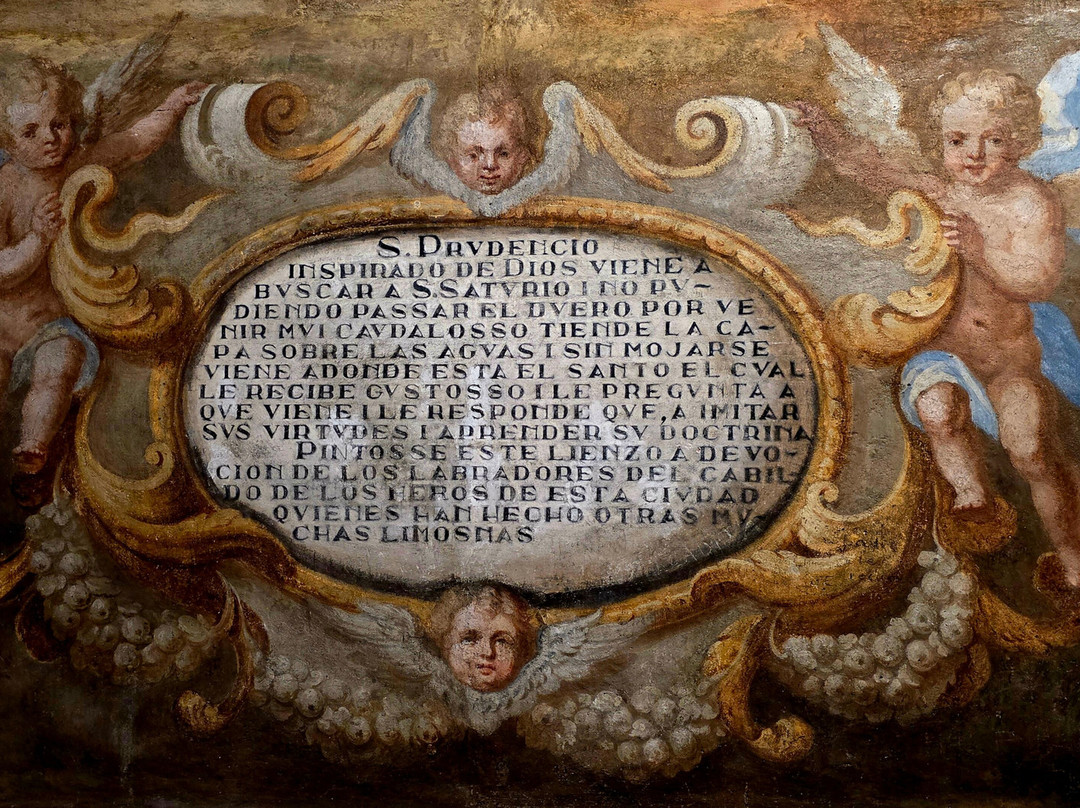 S. PRVDENCIO
INSPIRADO DE DIOS VIENE A
BVSCAR A S. SATVRIO I NO PV~
DIENDO PASSAR EL DVERO POR VE
NIR MVI CAVDALOSSO TIENDE LA CA~
PA SOBRE LAS AGVAS I SIN MOJARSE
VIENE ADONDE ESTA EL SANTO EL CVAL
LE RECIBE GVSTOSSO I LE PREGVNTA A
QVE VIENE I LE RESPONDE QVE, A IMITAR
SVS VIRTVDES I APRENDER SV DOCTRINA
PINTOSSE ESTE LIENZO A DEVO~
CION DE LOS LABRADORES DEL CABIL~
DO DE LOS HEROS DE ESTA CIVDAD
QVIENES HAN HECHO OTRAS MV~
CHAS LIMOSNAS